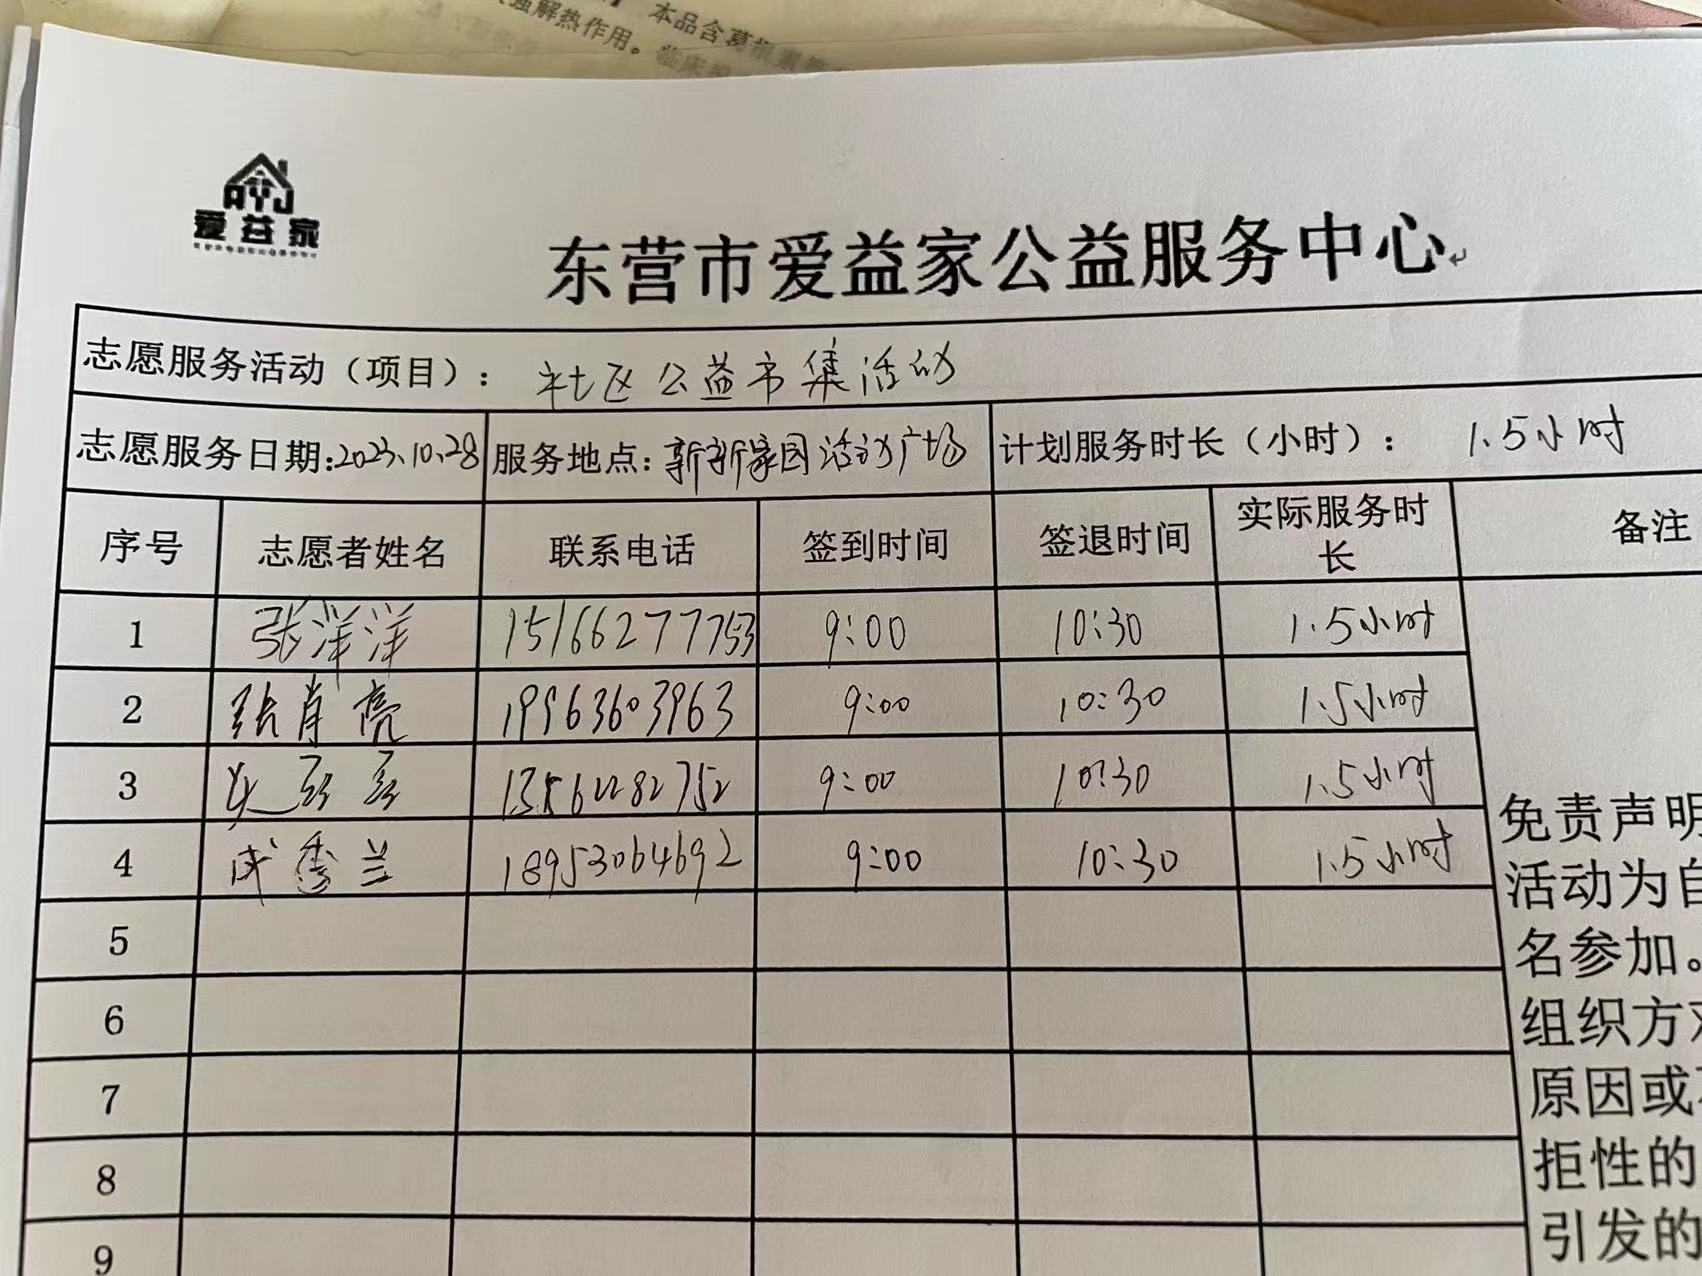 本品含葛根素
强解热作用。临床
AYJ
爱益家
东营市爱益家公益服务中心
志愿服务活动（项目）： 社区公益市集活动
志愿服务日期:2023.10.28 服务地点: 新新家园活动广场 计划服务时长（小时）： 1.5小时
序号 志愿者姓名 联系电话 签到时间 签退时间 实际服务时长 备注
1 张洋洋 15166277753 9:00 10:30 1.5小时
2 张肖亮 19963603963 9:00 10:30 1.5小时
3 13562282752 9:00 10:30 1.5小时
4 成秀兰 18953064692 9:00 10:30 1.5小时
5
6
7
8
9
免责声明
活动为自
名参加。
组织方对
原因或不
拒性的
引发的